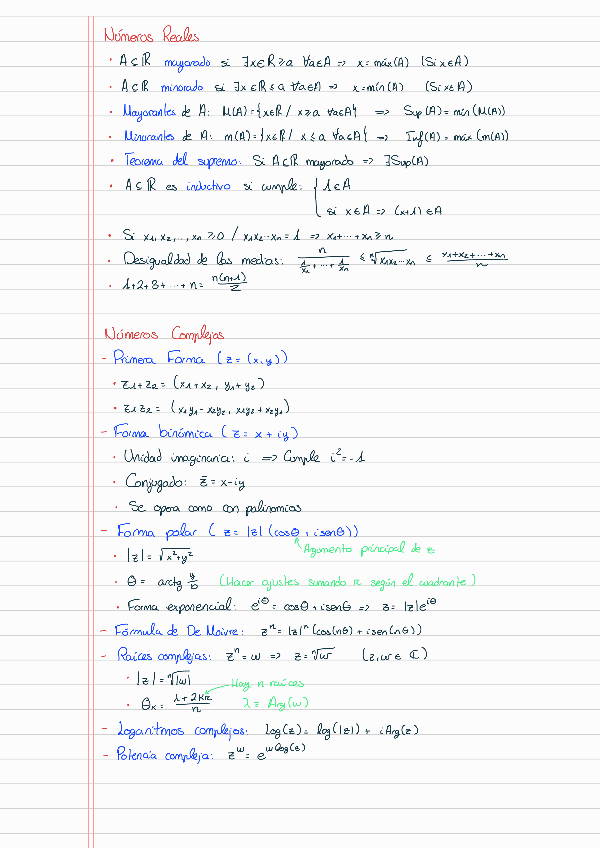 Números Reales
· A⊆ℝ mayorado si ∃x∈ℝ⩾a ∀a∈A => x=máx(A) (Si x∈A)
· A⊆ℝ minorado si ∃x∈ℝ⩽a ∀a∈A => x=mín(A) (Si x∈A)
· Mayorantes de A: M(A)={x∈ℝ/ x⩾a ∀a∈A} => Sup(A)=mín(M(A))
· Minorantes de A: m(A)={x∈ℝ/ x⩽a ∀a∈A} => Inf(A)=máx(m(A))
· Teorema del supremo: Si A⊆ℝ mayorado => ∃Sup(A)
· A⊆ℝ es inductivo si cumple: { 1∈A
si x∈A => (x+1)∈A
· Si x₁,x₂,...,xₙ ⩾0 / x₁x₂···xₙ=1 => x₁+···+xₙ⩾n
· Desigualdad de las medias: n/(1/x₁+···+1/xₙ) ⩽ ⁿ√(x₁x₂···xₙ) ⩽ (x₁+x₂+···+xₙ)/n
· 1+2+3+···+n = n(n+1)/2
Números Complejos
- Primera Forma (z=(x,y))
· z₁+z₂ = (x₁+x₂, y₁+y₂)
· z₁z₂ = (x₁y₁-x₂y₂, x₁y₂+x₂y₁)
- Forma binómica (z=x+iy)
· Unidad imaginaria: i => Cumple i²=-1
· Conjugado: z̄=x-iy
· Se opera como con polinomios
- Forma polar (z=|z|(cosθ+isenθ))
Argumento principal de z
· |z|=√(x²+y²)
· θ= arctg y/b (Hacer ajustes sumando π según el cuadrante)
· Forma exponencial: e^(iθ)=cosθ+isenθ => z=|z|e^(iθ)
- Fórmula de De Moivre: zⁿ=|z|ⁿ(cos(nθ)+isen(nθ))
- Raíces complejas: zⁿ=w => z=ⁿ√w (z,w∈ℂ)
· |z|=ⁿ√|w| Hay n raíces
· θₖ= (λ+2kπ)/n λ=Arg(w)
- Logaritmos complejos: log(z)=log(|z|)+iArg(z)
- Potencia compleja: z^w=e^(wlog(z))